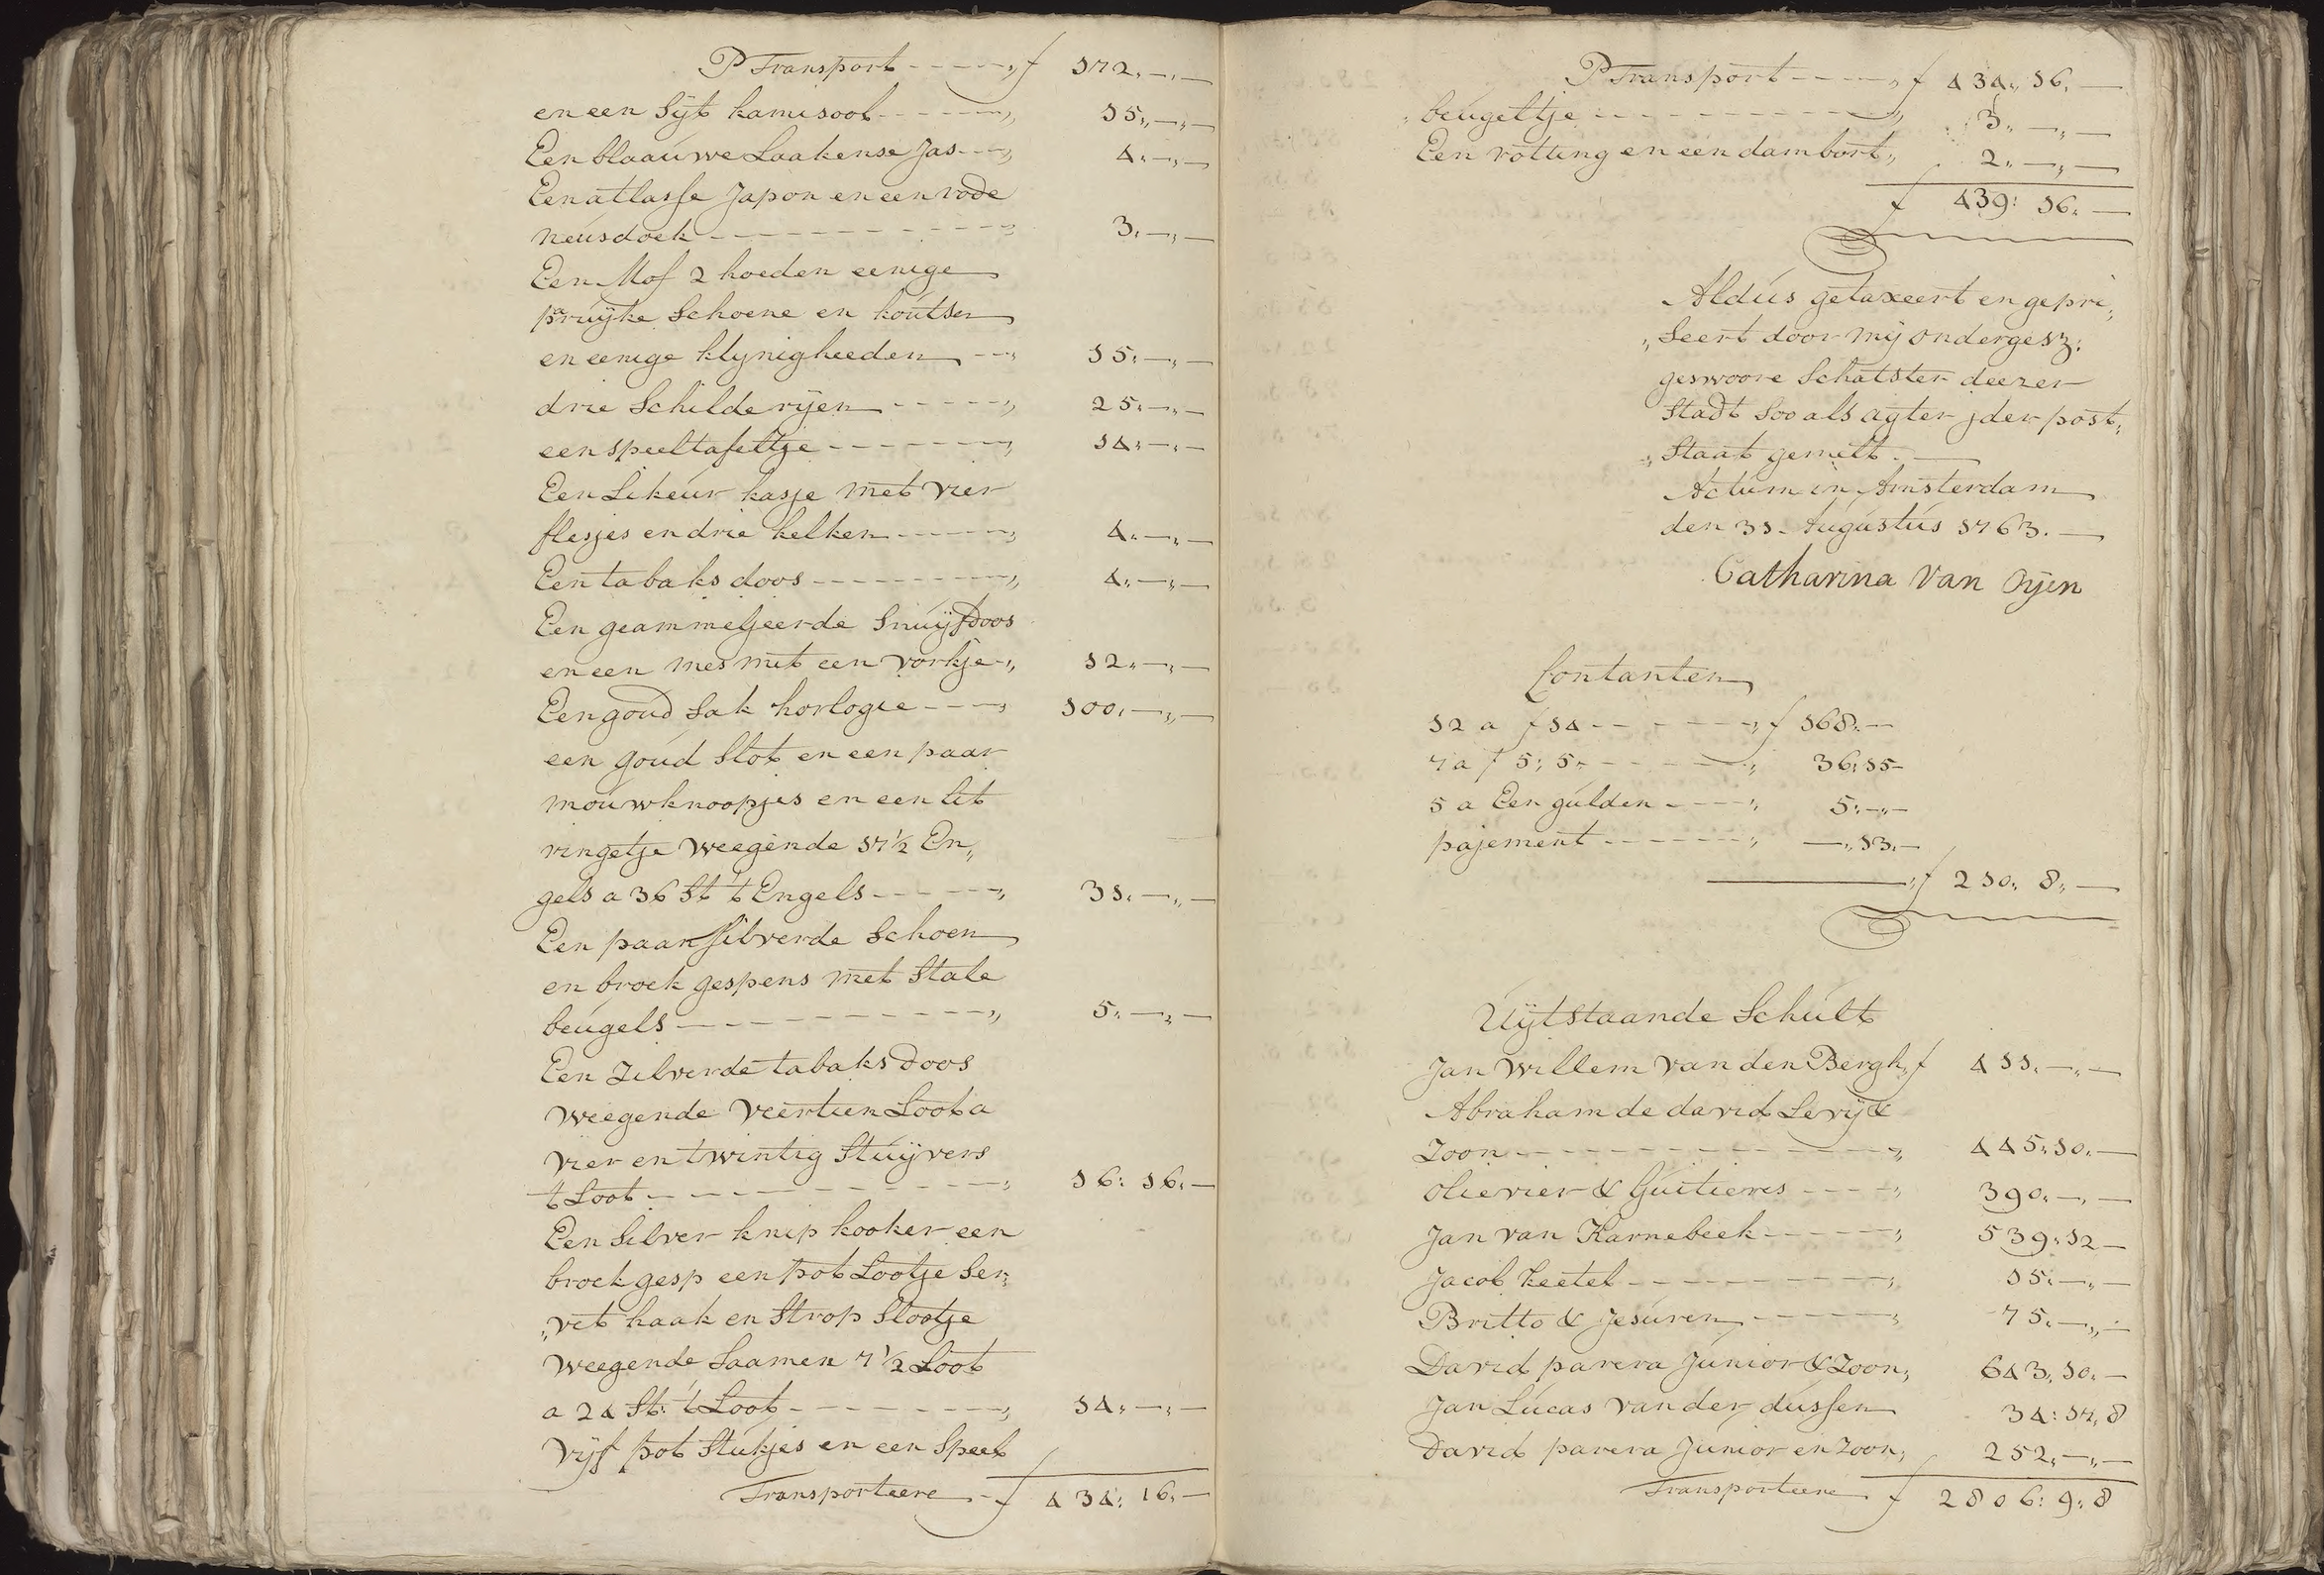 P Transport - - - - „ f 172„ —„ —
en een Sijt kamisool - - - - - „ 15„ —„ —
Een blaauwe Laakense Jas - - „ 4„ —„ —
Een atlasse Japon en een rode
neusdoek - - - - - - - - - „ 3„ —„ —
Een Mof 2 hoeden eenige
pruijke Schoene en koutsen
en eenige klijnigheeden - - „ 15„ —„ —
drie Schilderijen - - - - - „ 25„ —„ —
een speeltafeltje - - - - - - „ 14„ —„ —
Een Likeur kasje met vier
flesjes en drie kelken - - - - „ 4„ —„ —
Een tabaks doos - - - - - - - „ 4„ —„ —
Een geammeljeerde Snuijfdoos
en een mes met een vorkje „ 12„ —„ —
Een goud Sak horlogie - - - „ 100„ —„ —
een goud Slot en een paar
mouwknoopjes en een let
ringetje weegende 17½ En„
gels a 36 St t Engels - - - - „ 31„ —„ —
Een paar silverde Schoen
en broek gespens met Stale
beugels - - - - - - - - - - „ 5„ —„ —
Een Zilverde tabaks doos
weegende veertien Loot a
vier en twintig Stuijvers
t Loot - - - - - - - - - - „ 16: 16„ —
Een Silver knip kooker een
broek gesp een pot Lootje Ser„
„vet haak en Strop Slootje
weegende Saamen 7½ Loot
a 24 St: 't Loot - - - - - - - „ 14„ —„ —
vijf pot Stukjes en een Speel
Transporteere - f 434: 16„ —
P Transport - - - - „ f 434„ 16„ —
„beugeltje - - - - - - - - - „ 3„ —„ —
Een rotting en een dambort „ 2„ —„ —
f 439: 16„ —
Aldus getaxeert en gepri„
„Seert door mij ondergesz:
geswoore Schatster deezer
Stadt Soo als agter jder post„
„Staat gemelt. —
Actum in Amsterdam
den 31. Augustus 1763. —
Catharina van Oijen
Contanten
12 a f 14 - - - - - - „ f 168: —
7 a f 5: 5„ - - - - - „ 36: 15 -
5 a Een gulden - - - - „ 5: —„ —
pajement - - - - - - „ —„ 13„ —
„ f 210„ 8„ —
Uijtstaande Schult
Jan Willem van den Bergh „ f 411„ —„ —
Abraham de david Levij &
Zoon - - - - - - - - - - „ 445: 10„ —
olievier & Guitieres - - - - „ 390„ —„ —
Jan van Karnebeek - - - - - „ 539: 12 —
Jacob Keetel - - - - - - - - „ 15: —„ —
Britto & Jesuren - - - - - „ 75„ —„ —
David parera Junior & Zoon „ 643„ 10„ —
Jan Lucas van der dussen 34: 17„ 8
David parera Junior en Zoon „ 252„ —„ —
Transporteere f 2806: 9: 8